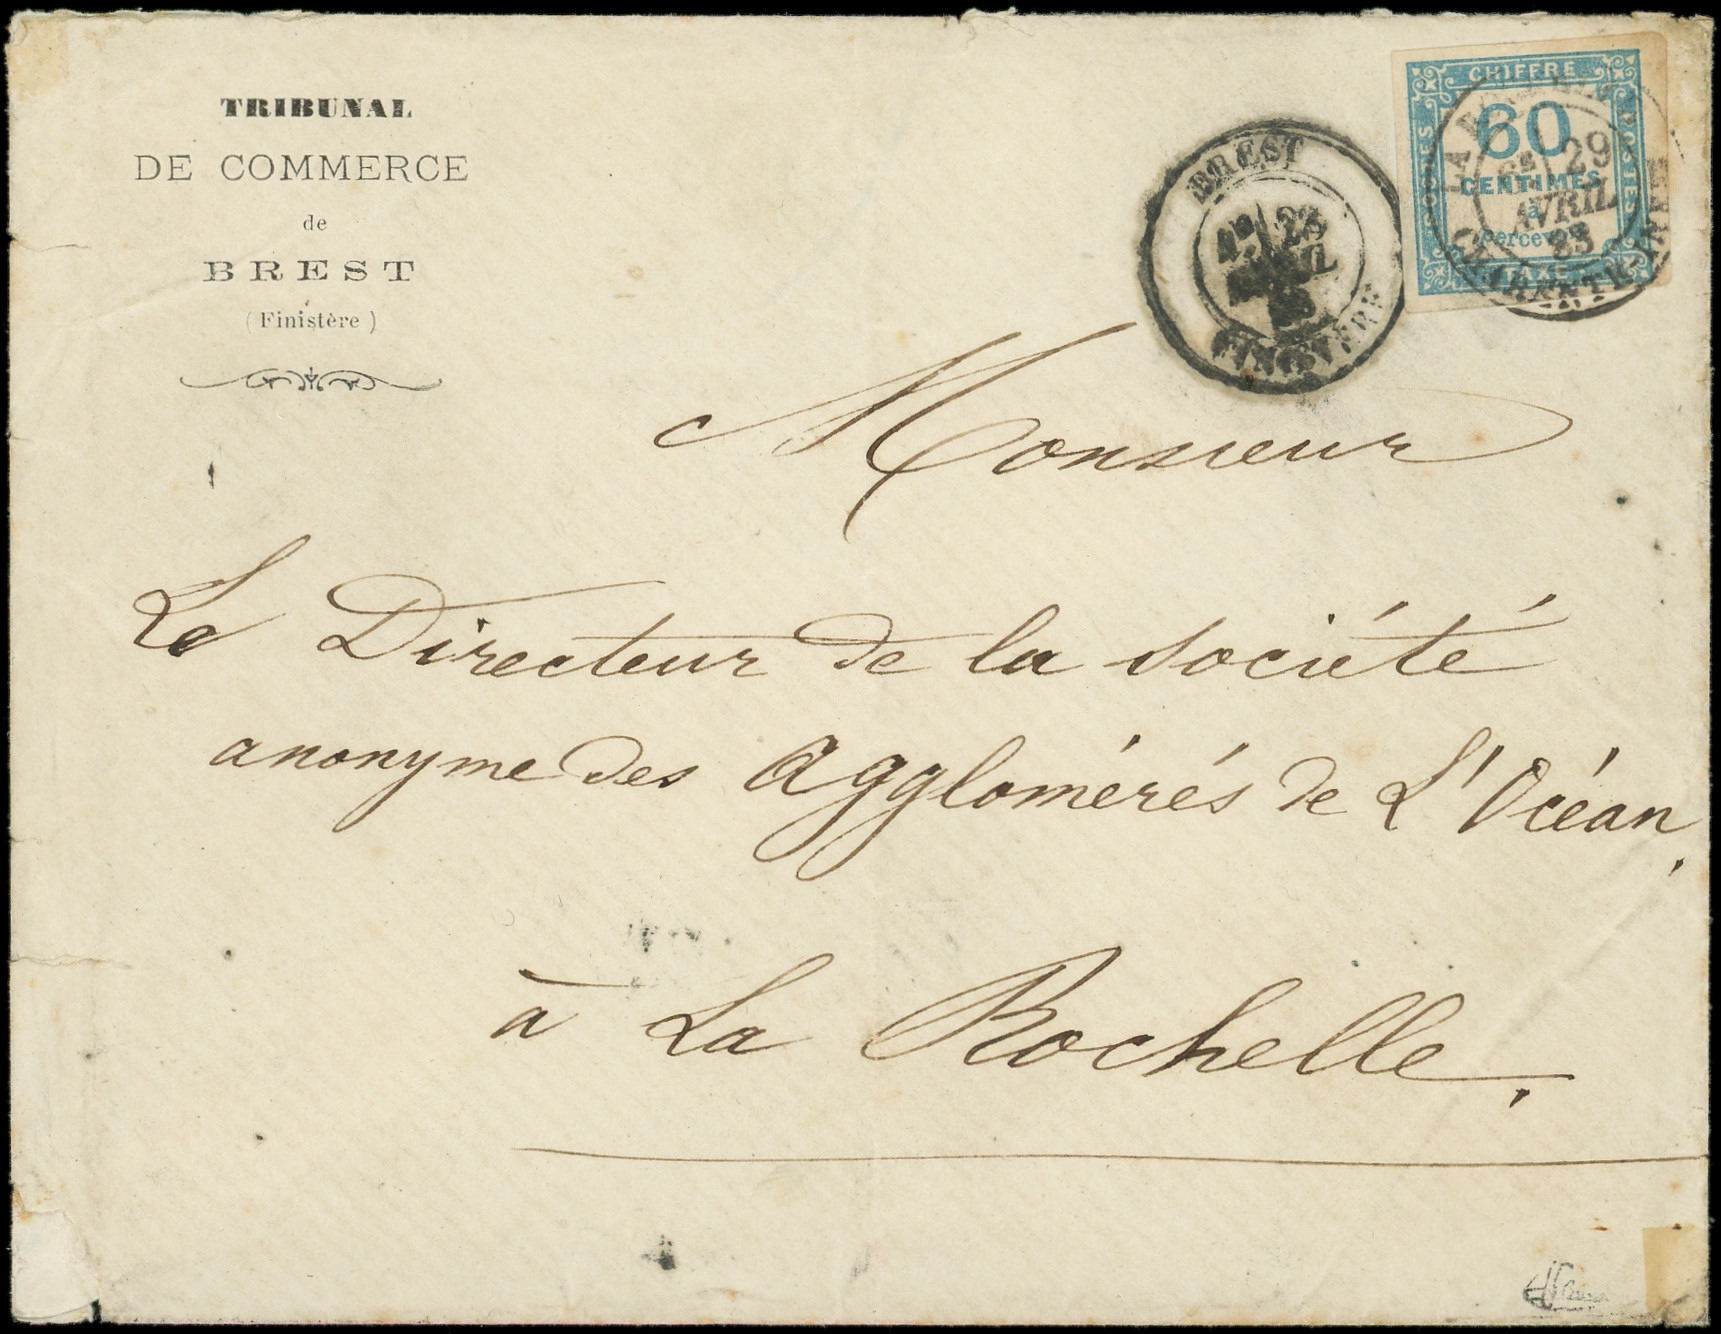 TRIBUNAL
DE COMMERCE
de
BREST
(Finistère)
BREST
FINISTERE
CHIFFRE
60
CENTIMES
à
percevoir
TAXE
POSTES
29
AVRIL
83
Monsieur
Le Directeur de la société
anonyme des Agglomérés de L'Océan.
à La Rochelle.